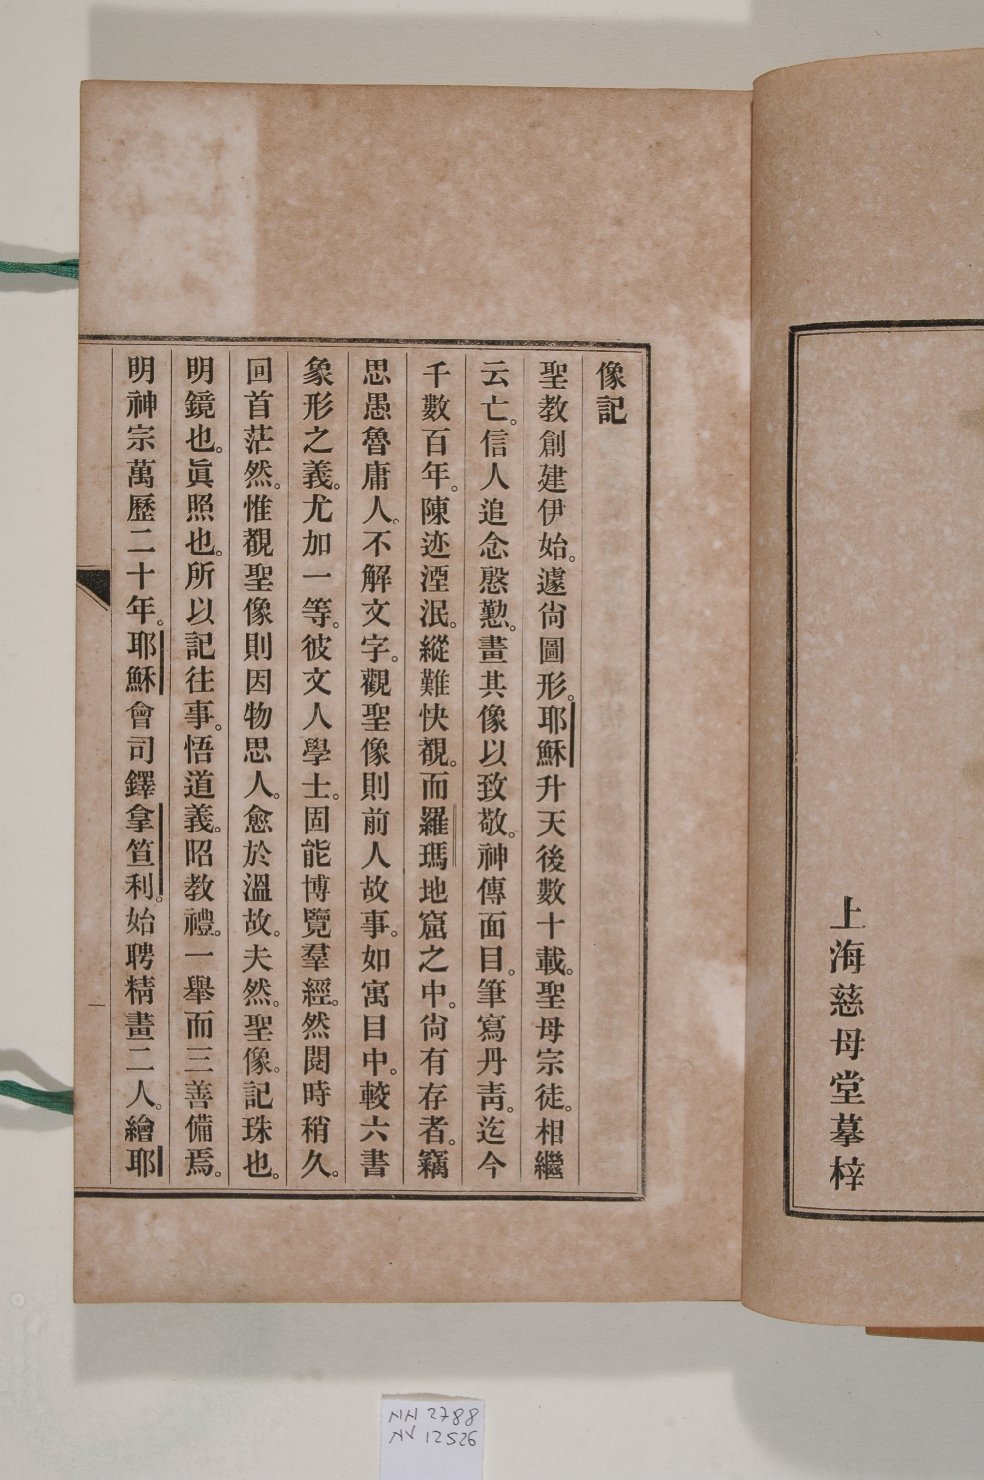 上海慈母堂摹梓
像記
聖教創建伊始。遽尙圖形。耶穌升天後數十載。聖母宗徒。相繼
云亡。信人追念慇懃。畫其像以致敬。神傳面目。筆寫丹靑。迄今
千數百年。陳迹湮泯。縱難快覩。而羅瑪地窟之中。尙有存者。竊
思愚魯庸人。不解文字。觀聖像則前人故事。如寓目中。較六書
象形之義。尤加一等。彼文人學士。固能博覽羣經。然閱時稍久。
回首茫然。惟覩聖像則因物思人。愈於溫故。夫然。聖像。記珠也。
明鏡也。眞照也。所以記往事。悟道義。昭教禮。一舉而三善備焉。
明神宗萬歷二十年。耶穌會司鐸拿笪利。始聘精畫二人。繪耶
一
NH 2788
NV 12526